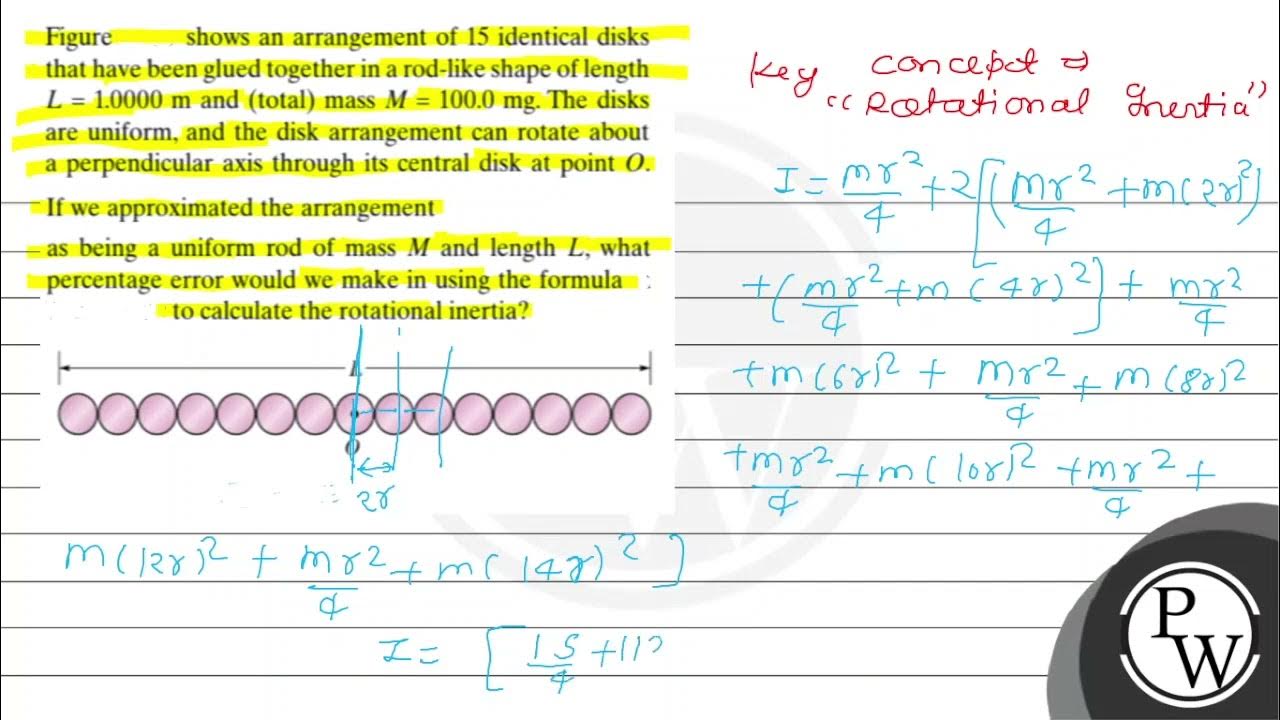 Figure shows an arrangement of 15 identical disks
that have been glued together in a rod-like shape of length
L = 1.0000 m and (total) mass M = 100.0 mg. The disks
are uniform, and the disk arrangement can rotate about
a perpendicular axis through its central disk at point O.
If we approximated the arrangement
as being a uniform rod of mass M and length L, what
percentage error would we make in using the formula
to calculate the rotational inertia?
L
O
2r
Key concept ⇒
“Rotational Inertia”
I = mr²/4 + 2[(mr²/4 + m(2r)²)
+ (mr²/4 + m(4r)²] + mr²/4
+ m(6r)² + mr²/4 + m(8r)²
+ mr²/4 + m(10r)² + mr²/4 +
m(12r)² + mr²/4 + m(14r)²]
I = [15/4 + 11
PW